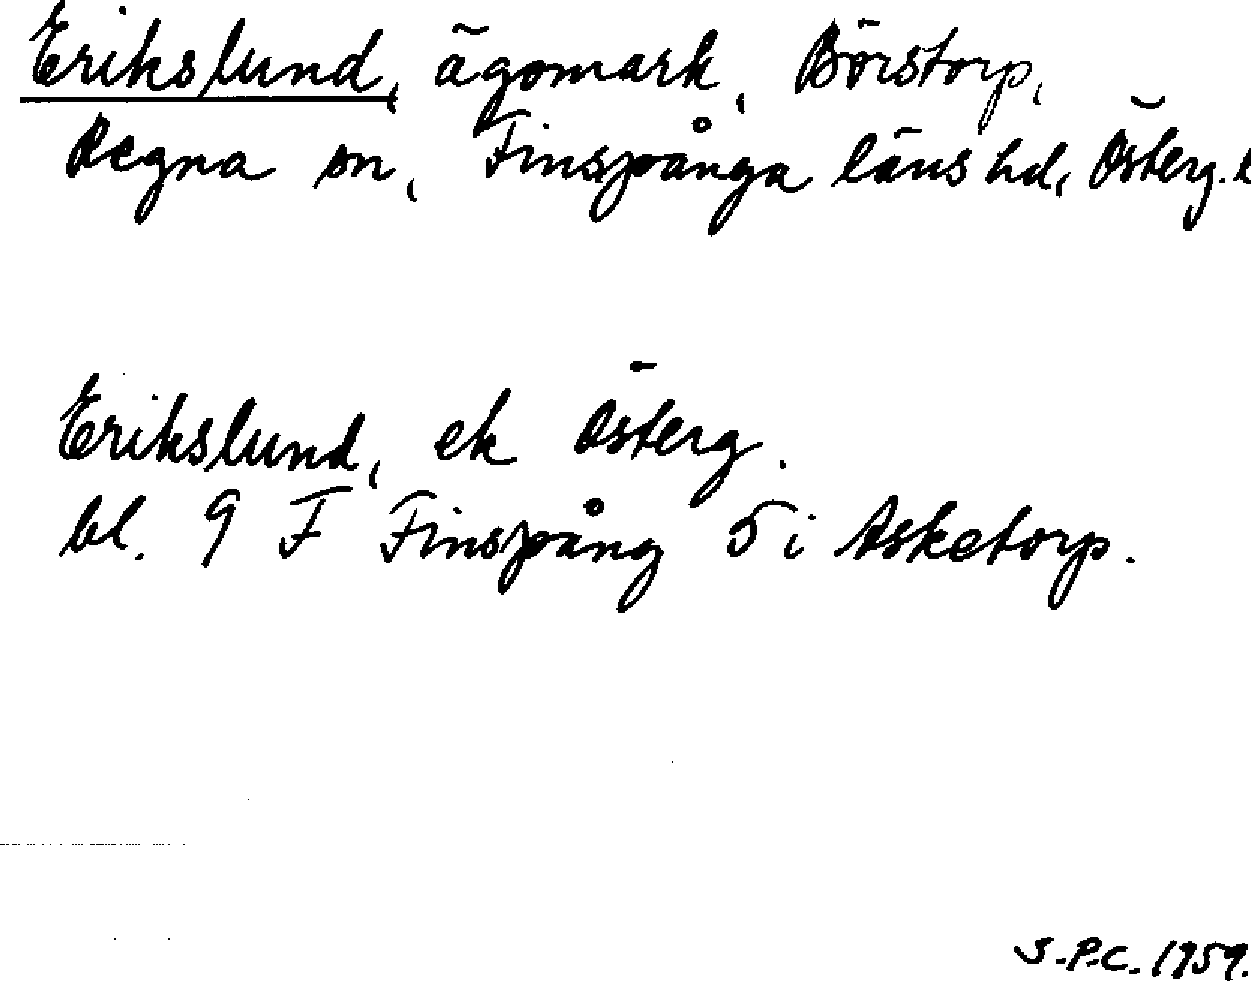 Erikslund, ägomark, Börstorp,
Regna sn, Finspånga läns hd, Österg. l
Erikslund, ek Österg.
bl. 9 F Finspång 5 i Asketorp.
S.P.C. 1959.